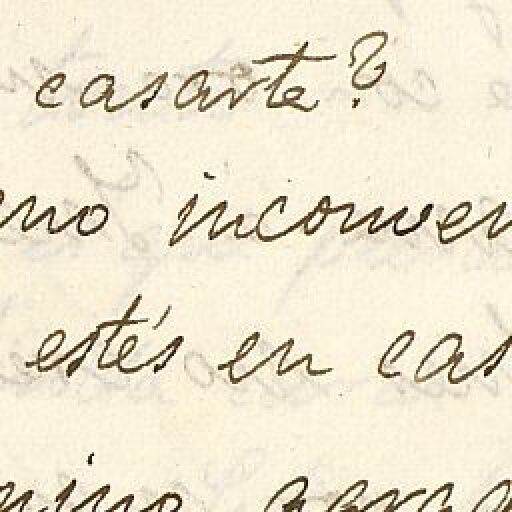 casarte?
eno inconven
estés en cas